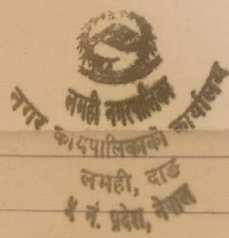 लमही नगरपालिका
नगर कार्यपालिकाको कार्यालय
लमही, दाङ
५ नं. प्रदेश, नेपाल